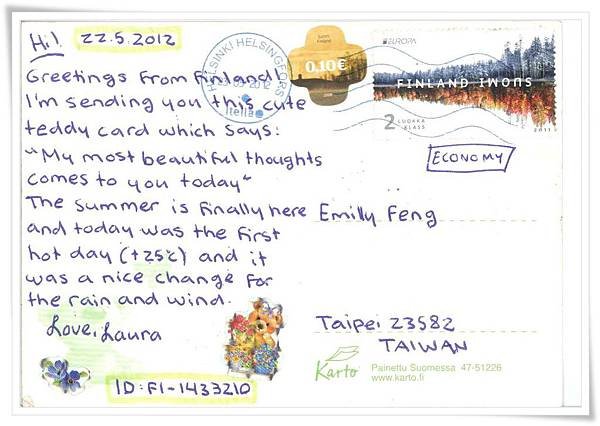 Hi! 22.5.2012
Greetings from Finland!
I'm sending you this cute
teddy card which says:
"My most beautiful thoughts
comes to you today"
The summer is finally here
and today was the first
hot day (+25°c) and it
was a nice change for
the rain and wind.
Love, Laura
ID: FI-1433210
HELSINKI HELSINGFORS
2012
Itella
SUOMI
FINLAND
0,10€
EUROPA
FINLAND SUOMI
2 LUOKKA
KLASS
2011
ECONOMY
Emilly Feng
Taipei 23582
TAIWAN
Karto
Painettu Suomessa 47-51226
www.karto.fi